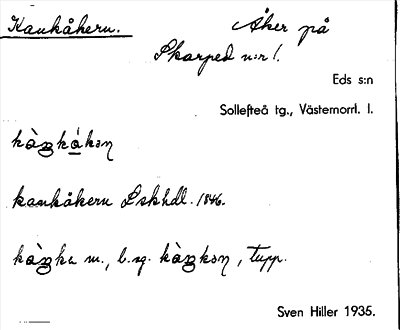 Kankåkern.
Åker på
Skarped n:r 1.
Eds s:n
Sollefteå tg., Västernorrl. l.
kankåkern Lskhdl. 1846.
m., b.sg. , tupp.
Sven Hiller 1935.